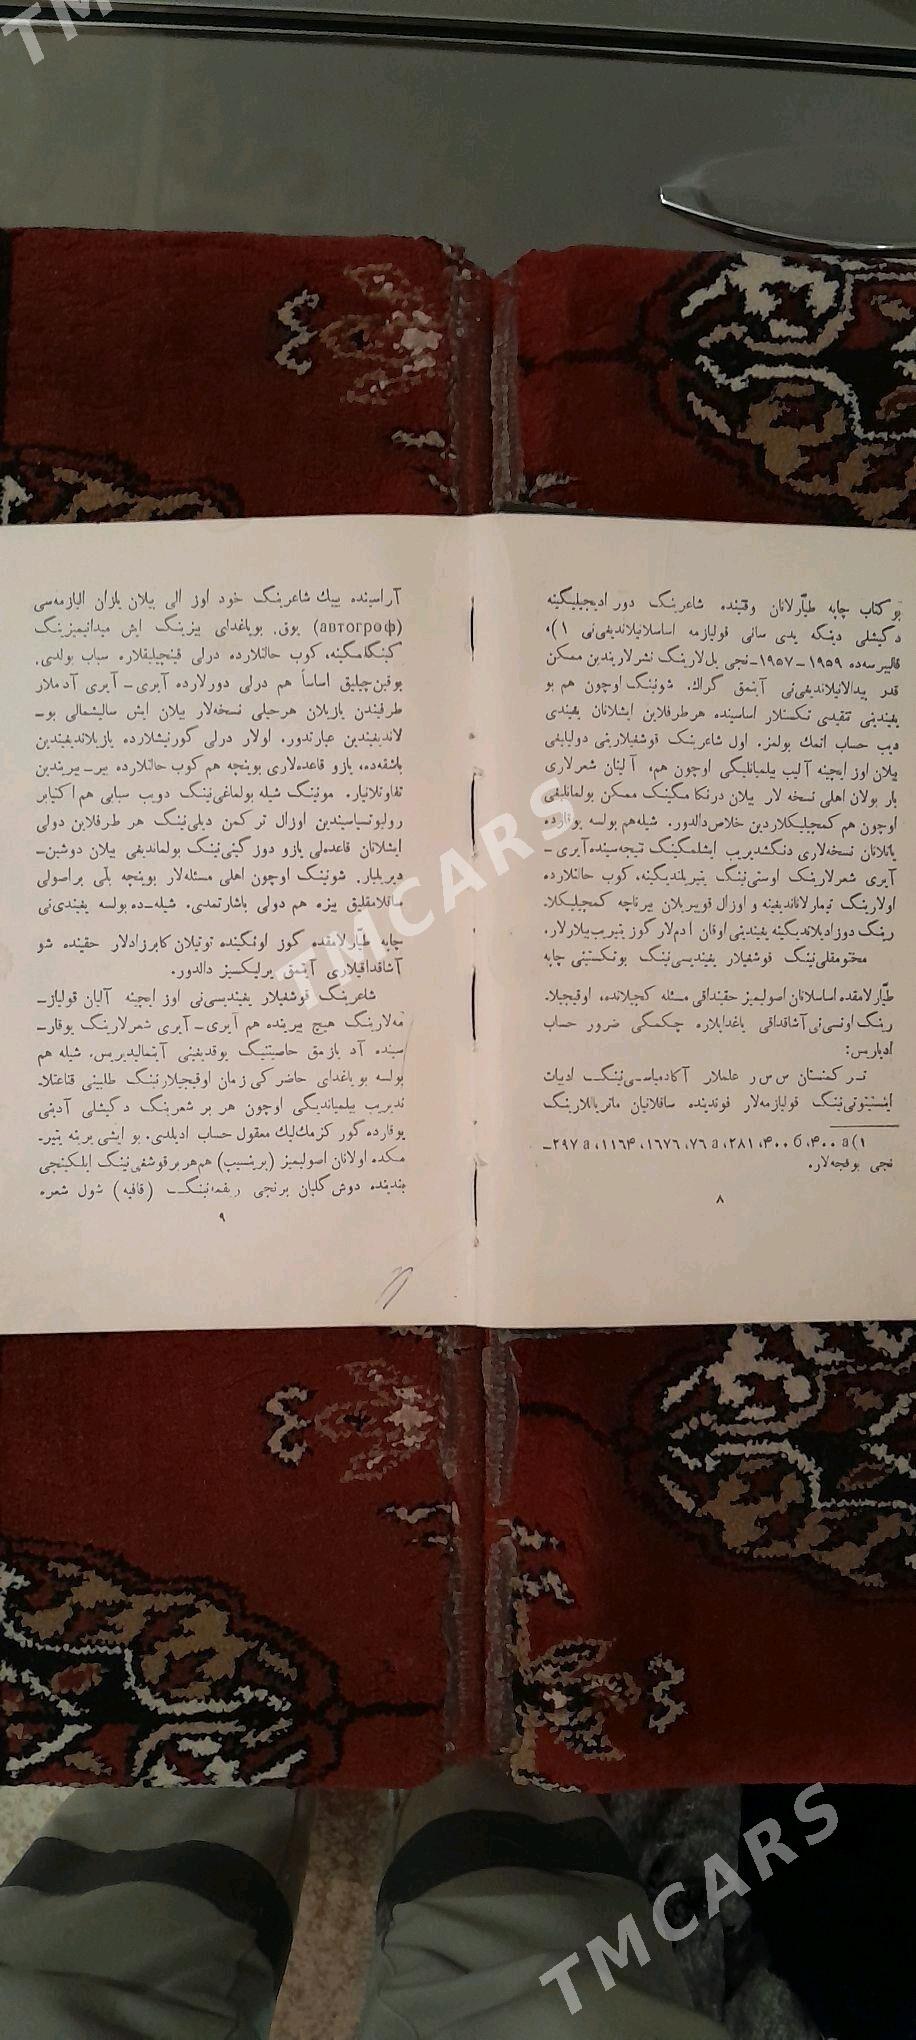 TMCARS
بو کتاب چاپه طیّارلانان وقتینده شاعرینگ دور ادیجیلیگینه
دگیشلی دینگه یدی سانی قولیازمه اساسلانیلاندیغی‌نی ۱)،
قالیبرسه‌ده ۱۹۵۹-۱۹۵۷-نجی یل‌لارینگ نشرلاریندین ممکن
قدر پیدالانیلاندیغی‌نی آیتمق گراك. شونینگ اوچون هم بو
یغیندینی تنقیدی تکستلار اساسینده هرطرفلاین ایشلانان یغیندی
دیب حساب اتمك بولمز. اول شاعرینگ قوشغیلارینی دولیلیغی
بیلان اوز ایچینه آلیب بیلمانلیگی اوچون هم، آلینان شعرلاری
بار بولان اهلی نسخه لار بیلان درنکامگینگ ممکن بولمانلیغی
اوچون هم کمچیلیکلاردین خلاص‌دالدور. شیله‌هم بولسه یوقارده
یاتلانان نسخه‌لاری دنگشدیریب ایشلمگینگ نتیجه‌سینده آیری-
آیری شعرلارینگ اوستی‌نینگ یتیریلندیگینه، کوب حاتلارده
اولارینگ تیمارلاناندیغینه و اوزال قویبریلان بیرناچه کمچیلیکلا-
رینگ دوزادیلاندیگینه یغیندینی اوقان آدملار گوز یتیریب‌بیلارلار.
مختومقلی‌نینگ قوشغیلار یغیندیسی‌نینگ بوتکستینی چاپه
طیّارلامقده اساسلانان اصولیمیز حقینداقی مسئله گچیلانده، اوقیجیلا-
رینگ اونسی‌نی آشاقداقی یاغدایلاره چکمگی ضرور حساب
ادیاریس:
تــر کمنستان س س ر علملار آکادمیاســی‌نینگ ادبیات
اینستیتوتی‌نینگ قولیازمه‌لار فوندینده ساقلانیان ماتریاللارینگ
۱) ۴۰۰а، ۴۰۰б، ۲۸۱، ۷۶а، ۱۶۷۶، ۱۱۶۴، ۲۹۷а-
نجی بوقجه‌لار.
۸
آراسینده بییك شاعرینگ خود اوز الی بیلان یازان الیازمه‌سی
(автогроф) یوق. بویاغدای بیزینگ ایش میدانیمیزینگ
گینگامگینه، کوب حاتلارده درلی قینچیلیقلاره سباب بولدی.
یوقین‌چیلیق اساساً هم درلی دورلارده آیری-آیری آدملار
طرفیندن یازیلان هرحیلی نسخه‌لار بیلان ایش سالیشمالی بو-
لاندیغیندین عبارتدور. اولار درلی گورنیشلارده یازیلاندیغیندین
باشقه‌ده، یازو قاعده‌لاری بوینچه هم کوب حاتلارده بیر-بیریندین
تفاوتلانیار. مونینگ شیله بولماغی‌نینگ دویب سبابی هم اکتیابر
رولیوتسیاسیندین اوزال ترکمن دیلی‌نینگ هر طرفلاین دولی
ایشلانان قاعده‌لی یازو دوز گینی‌نینگ بولماندیغی بیلان دوشین-
دیریلیار. شونینگ اوچون اهلی مسئله‌لار بوینچه بللی بر اصولی
ساقلامقلیق بیزه هم دولی باشارتمدی. شیله-ده بولسه یغیندی‌نی
چاپه طیّارلامقده گوز اونگینده توتیلان کابرزادلار حقینده شو
آشاقداقیلاری آیتمق یرلیکسیز دالدور.
شاعرینگ قوشغیلار یغیندیسی‌نی اوز ایچینه آلیان قولیاز-
مه‌لارینگ هیچ بیرینده هم آیری-آیری شعرلارینگ یوقار-
سینده آد یازمق حاصیتینگ یوقدیغینی آیتمالیدیریس. شیله هم
بولسه بو یاغدای حاضر کی زمان اوقیجیلارنینگ طلبینی قناعتلا-
ندیریب بیلماندیگی اوچون هر بر شعرینگ دگیشلی آدینی
یوقارده گور کزمك‌لیك معقول حساب ادیلدی. بو ایشی یرینه یتیر-
مکده اولانان اصولیمیز (پرینسیپ) هم هربر قوشغی‌نینگ ایلکینجی
بندینده دوش گلیان برنجی ریفمه‌نینگ (قافیه) شول شعره
۹
TMCARS
TMCARS